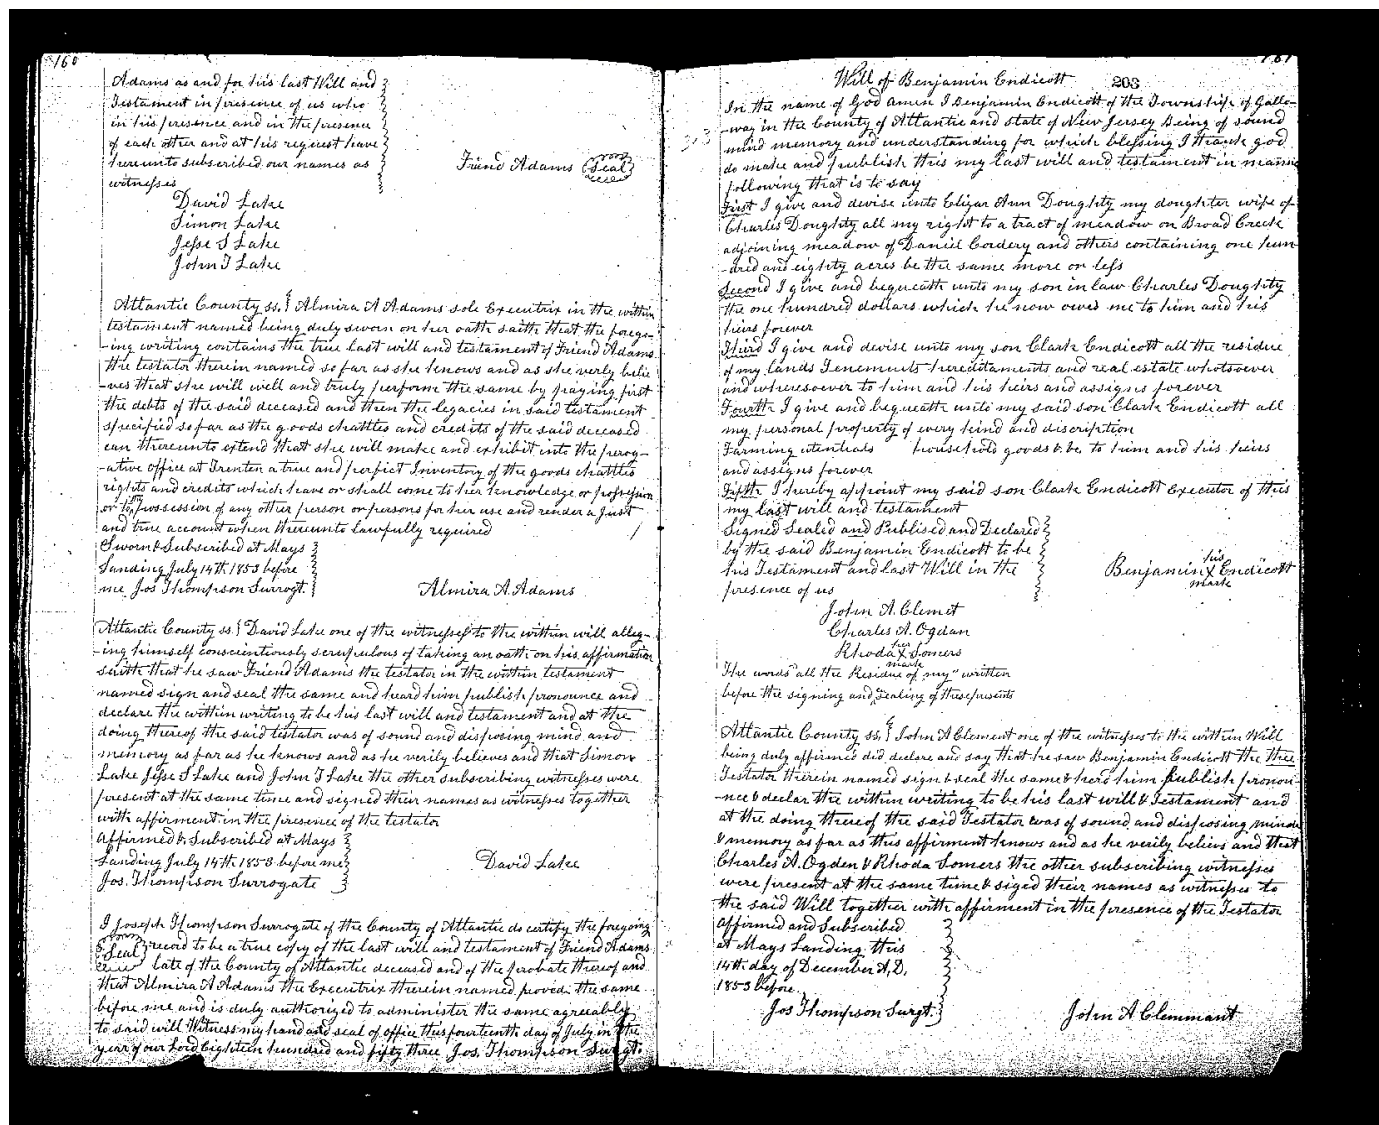 160
Adams as and for his last Will and
Testament in presence of us who
in his presence and in the presence
of each other and at his request have
hereunto subscribed our names as
witnesses
Friend Adams (Seal)
David Lake
Simon Lake
Jesse S Lake
John T Lake
Atlantic County ss. { Almira A Adams sole Executrix in the within
testament named being duly sworn on her oath saith that the forego-
-ing writing contains the true last will and testament of Friend Adams
the testator therein named so far as she knows and as she verly belie
-ves that she will well and truly perform the same by paying first
the debts of the said deceased and then the legacies in said testament
specified so far as the goods chattles and credits of the said deceased
can thereunto extend that she will make and exhibit into the perog-
-ative office at Trenton a true and perfict Inventory of the goods chattles
rights and credits which have or shall come to her knowledge or possession
or to the possession of any other person or persons for her use and render a just
and true account when thereunto lawfully required
Sworn & Subscribed at Mays
Landing July 14th 1853 before
me Jos Thompson Surrogt.
Almira A. Adams
Atlantic County ss. { David Lake one of the witnesses to the within will alleg-
-ing himself conscientiously scrupulous of taking an oath on his affirmation
saith that he saw Friend Adams the testator in the within testament
named sign and seal the same and heard him publish pronounce and
declare the within writing to be his last will and testament and at the
doing thereof the said testator was of sound and disposing mind and
memory as far as he knows and as he verily believes and that Simon
Lake Jesse S Lake and John T Lake the other subscribing witnesses were
present at the same time and signed their names as witnesses together
with affirment in the presence of the testator
Affirmed & Subscribed at Mays
Landing July 14th 1853 before me
Jos. Thompson Surrogate
David Lake
I Joseph Thompson Surrogate of the County of Atlantic do certify the foregoing
(Seal) record to be a true copy of the last will and testament of Friend Adams
late of the County of Atlantic deceased and of the probate thereof and
that Almira A Adams the Executrix therein named proved the same
before me and is duly authorized to administer the same agreeably
to said will Witness my hand and seal of office this fourteenth day of July in the
year of our Lord Eighteen hundred and fifty three Jos. Thompson Surgt.
161
Will of Benjamin Endicott 203
In the name of God amen I Benjamin Endicott of the Township of Gallo-
-way in the County of Atlantic and state of New Jersey Being of sound
mind memory and understanding for which blessing I thank god
do make and publish this my last will and testament in manne
following that is to say
First I give and devise unto Elizar Ann Doughty my doughter wife of
Charles Doughty all my right to a tract of meadow on Broad Creek
adjoining meadow of Daniel Cordery and others containing one hun-
-dred and eighty acres be the same more or less
Second I give and bequeath unto my son in law Charles Doughty
the one hundred dollars which he now owes me to him and his
heirs forever
Third I give and devise unto my son Clark Endicott all the residue
of my lands Tenements hereditaments and real estate whatsoever
and wheresoever to him and his heirs and assigns forever
Fourth I give and bequeath unto my said son Clark Endicott all
my personal property of every kind and discription
Farming utentials household goods &c to him and his heirs
and assigns forever
Fifth I hereby appoint my said son Clark Endicott Executor of this
my last will and testament
Signed Sealed and Publised and Declared
by the said Benjamin Endicott to be
his Testament and last Will in the
presence of us
his
Benjamin X Endicott
mark
John A. Clemet
Charles A. Ogdan
her
Rhoda X Somers
mark
The words "all the Residue of my" written
before the signing and sealing of these presents
Atlantic County ss. { John A Clement one of the witnesses to the within Will
being duly affirmed did declare and say that he saw Benjamin Endicott the the
Testator therein named sign & seal the same & herd him publish pronou-
-nce & declar the within writing to be his last will & Testament and
at the doing thereof the said Testator was of sound and disposing minde
& memory as far as this affirment knows and as he verily belivs and that
Charles A. Ogden & Rhoda Somers the other subscribing witnesses
were present at the same time & siged their names as witnesses to
the said Will together with affirment in the presence of the Testator
Affirmed and Subscribed
at Mays Landing this
14th day of December A.D.
1853 before
Jos Thompson Surgt.
John A Clemmant